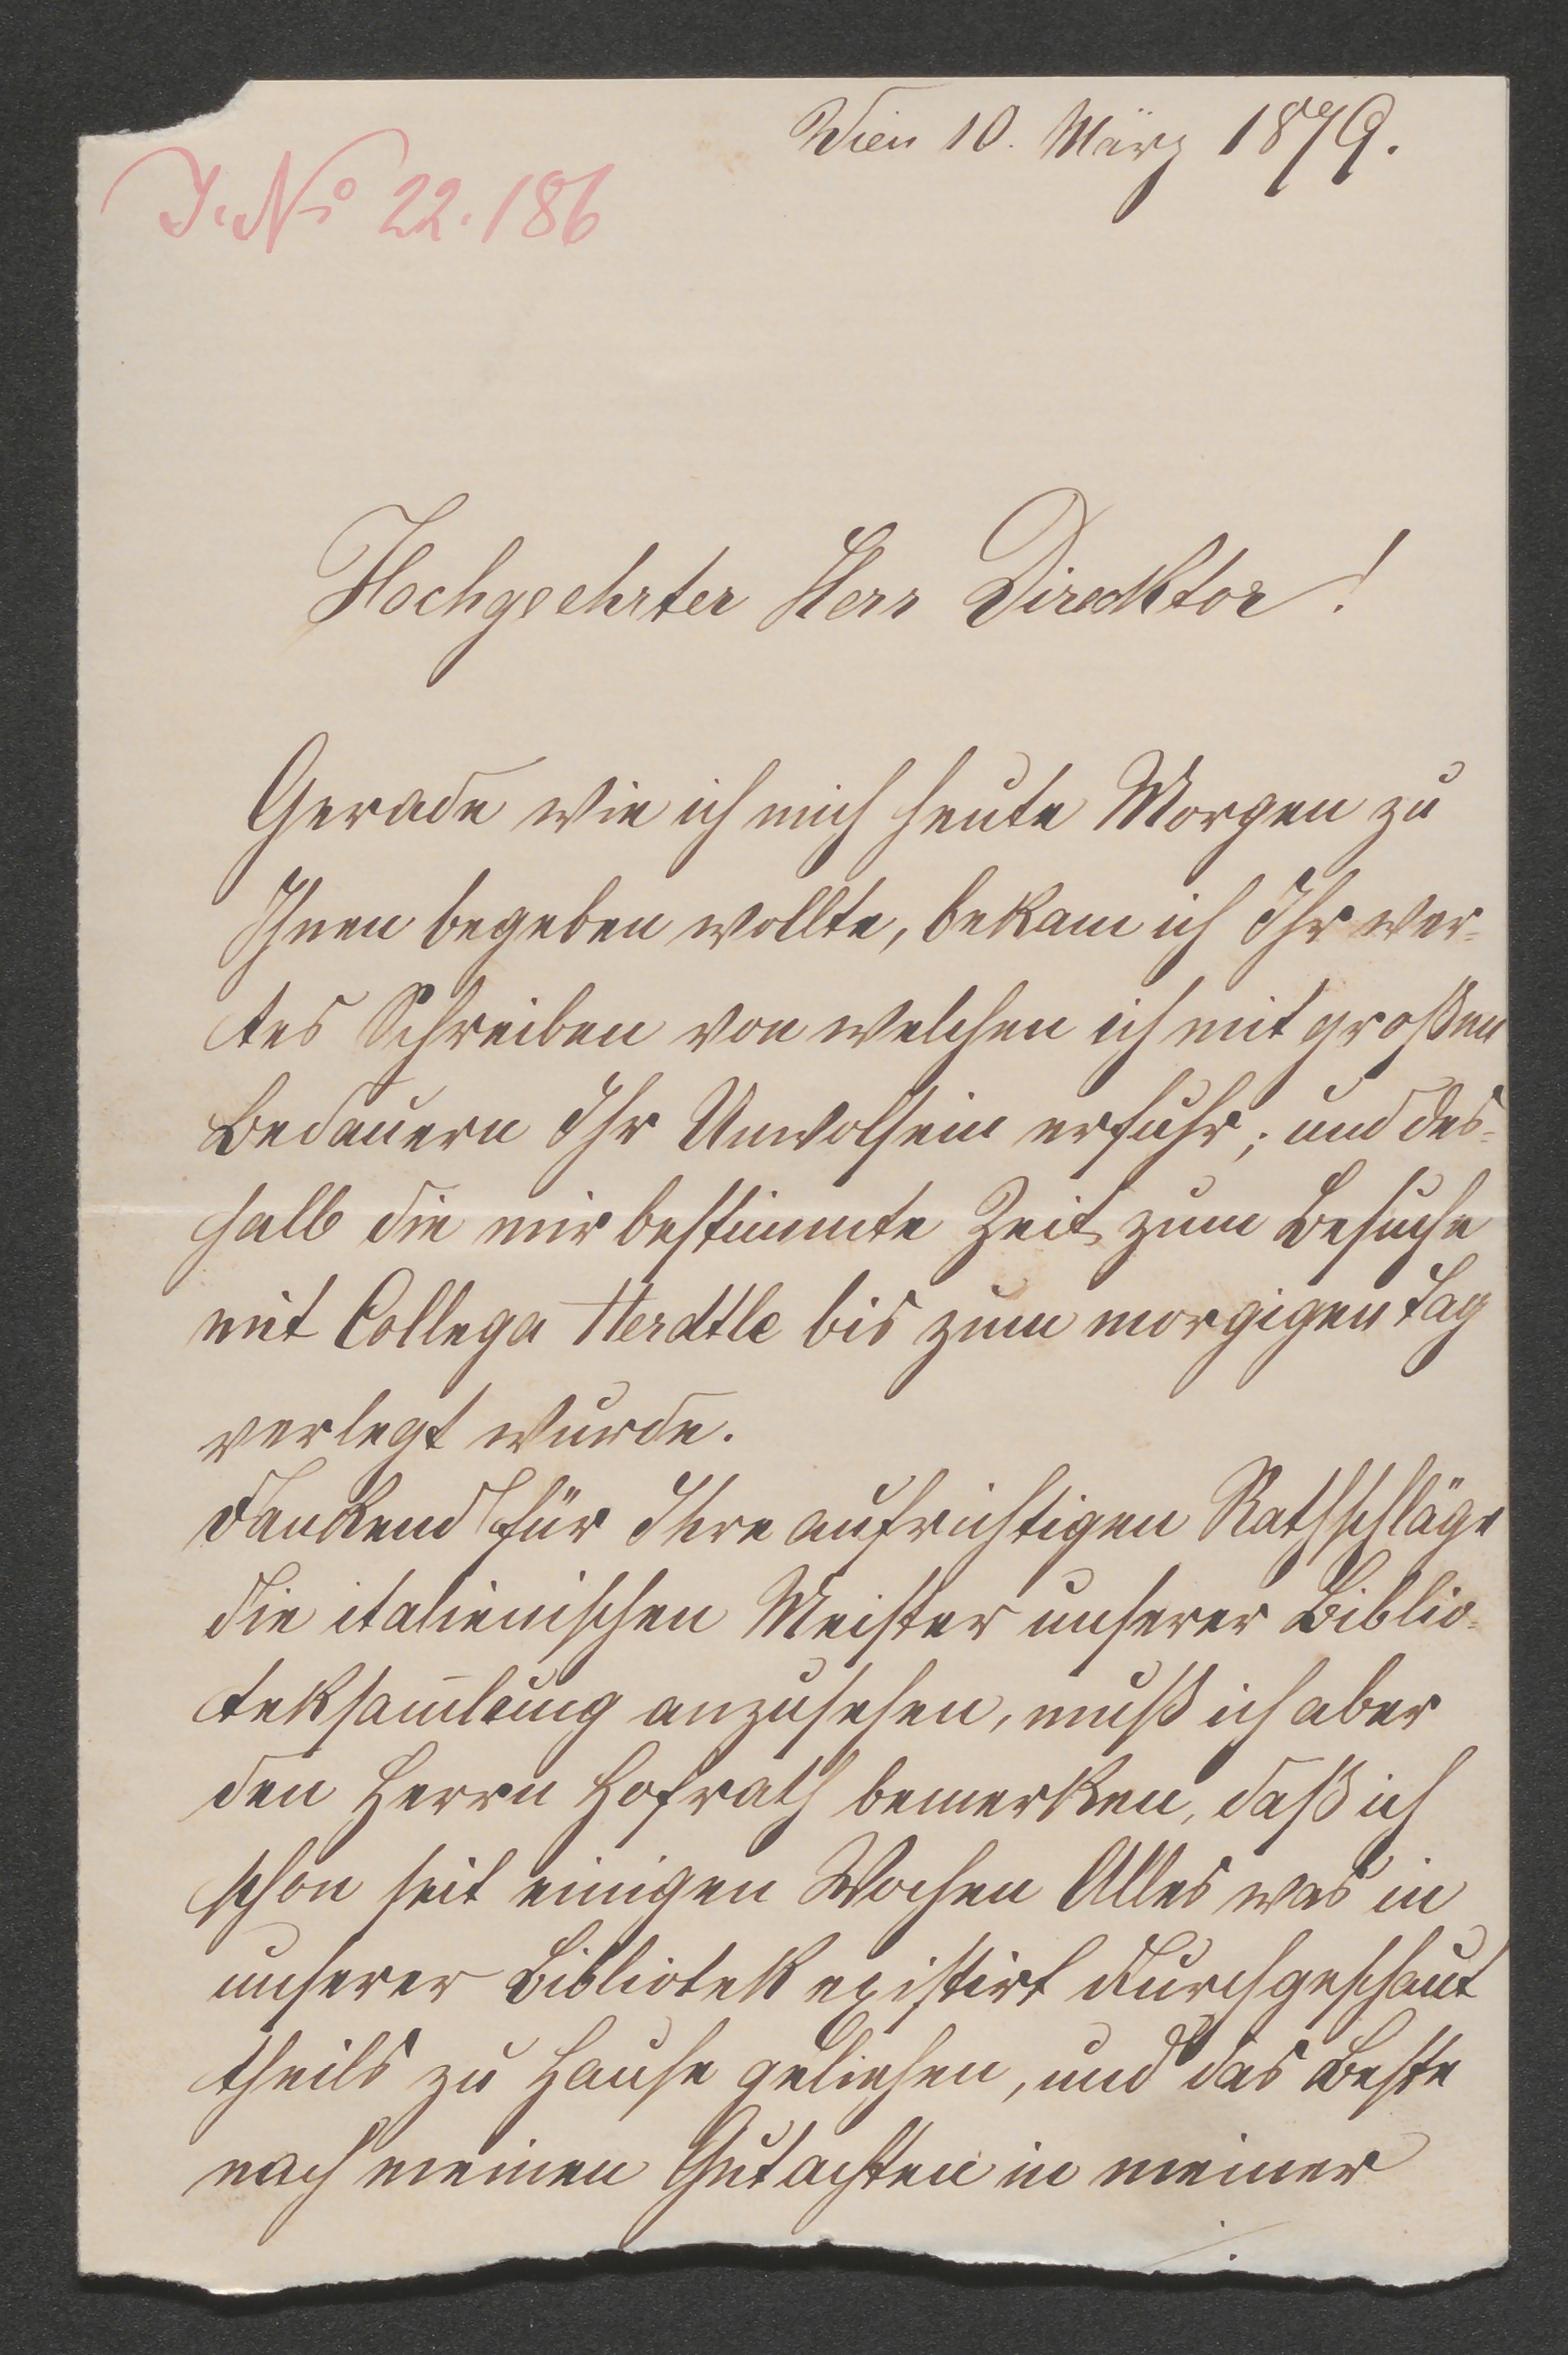 Wien 10. März 1879.
J. No 22.186
Hochgeehrter Herr Direcktor!
Gerade wie ich mich heute Morgen zu
Ihnen begeben wollte, bekam ich Ihr wer=
tes Schreiben von welchen ich mit großen
Bedauern Ihr Unwolsein erfuhr; und des=
halb die mir bestimmte Zeit zum Besuche
mit Collega Herdtle bis zum morgigen Tag
verlegt wurde.
Dankend für Ihre aufrichtigen Rathschläge
die italienischen Meister unserer Biblio=
teksam̄lung anzusehen, muß ich aber
den Herrn Hofrath bemerken, daß ich
schon seit einigen Wochen Alles was in
unserer Bibliotek existirt durchgeschaut
theils zu Hause geliehen, und das Beste
nach meinen Gutachten in meiner